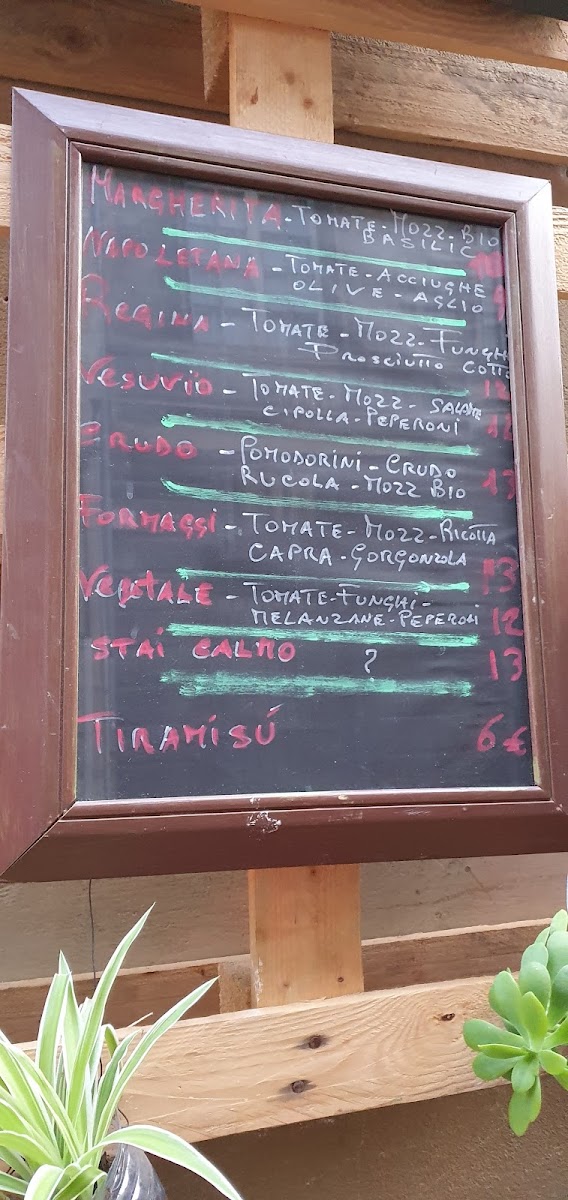 MARGHERITA - TOMATE - MOZZ - BIO
BASILIC
NAPOLETANA - TOMATE - ACCIUGHE
OLIVE - AGLIO 9
REGINA - TOMATE - MOZZ - FUNGHI
PROSCIUTTO COTTO
12
VESUVIO - TOMATE - MOZZ - SALAME
CIPOLLA - PEPERONI 12
CRUDO - POMODORINI - CRUDO
RUCOLA - MOZZ BIO 13
FORMAGGI - TOMATE - MOZZ - RICOTTA
CAPRA - GORGONZOLA
13
VEGETALE - TOMATE - FUNGHI -
MELANZANE - PEPERONI 12
STAI CALMO ? 13
TIRAMISÚ 6€